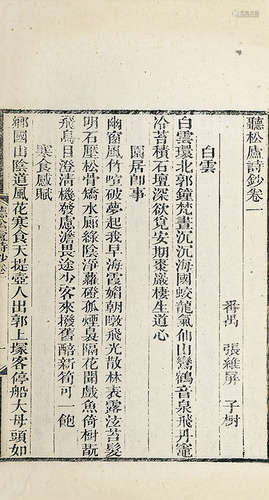 聽松廬詩鈔卷一
番禺 張維屏 子樹
白雲
白雲環北郭鐘梵晝沉沉海國蛟龍氣仙山鸞鶴音泉飛丹竈
冷苔積石壇深欲覓安期棗巖棲生道心
園居即事
幽窗風竹喧破夢起我早海霞媚朝暾飛光散林表露泫苔髮
明石壓松骨矯水廊綠陰淨蘿磴孤煙裊隔花開戲魚倚樹
飛鳥日澄清機發慮澹畏途少客來撥舊醅新筍可一飽
寒食感賦
鄉國山陰道風花寒食天提壺人出郭上塚客停船大母頭如
聽松廬詩鈔卷一